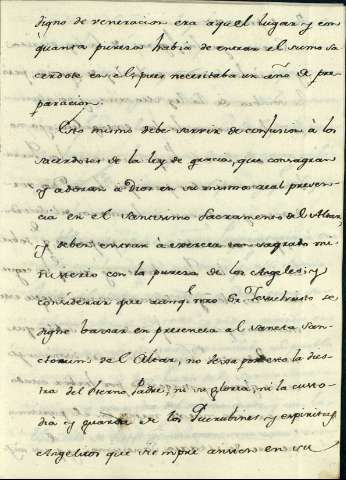 digno de veneracion era aquel lugar y con
quanta pureza habia de entrar el sumo sa
cerdote en èl, pues necesitaba un año de pre
paracion.
Esto mismo debe servir de confusion à los
sacerdotes de la ley de gracia, que consagran
y adoran a Dios en su misma real presen
cia en el Santisimo Sacramento del Altar,
y deben entrar à exercer tan sagrado mi
nisterio con la pureza de los Angeles; y
considerar que aunq.e nro Sr Jesuchristo se
digne baxar en presencia al sancta sanc
torum del Altar, no dexa por eso la dies
tra del Eterno Padre, ni su gloria, ni la custo
dia y guarda de los Querubines y espiritus
Angelicos que siempre asisten en su